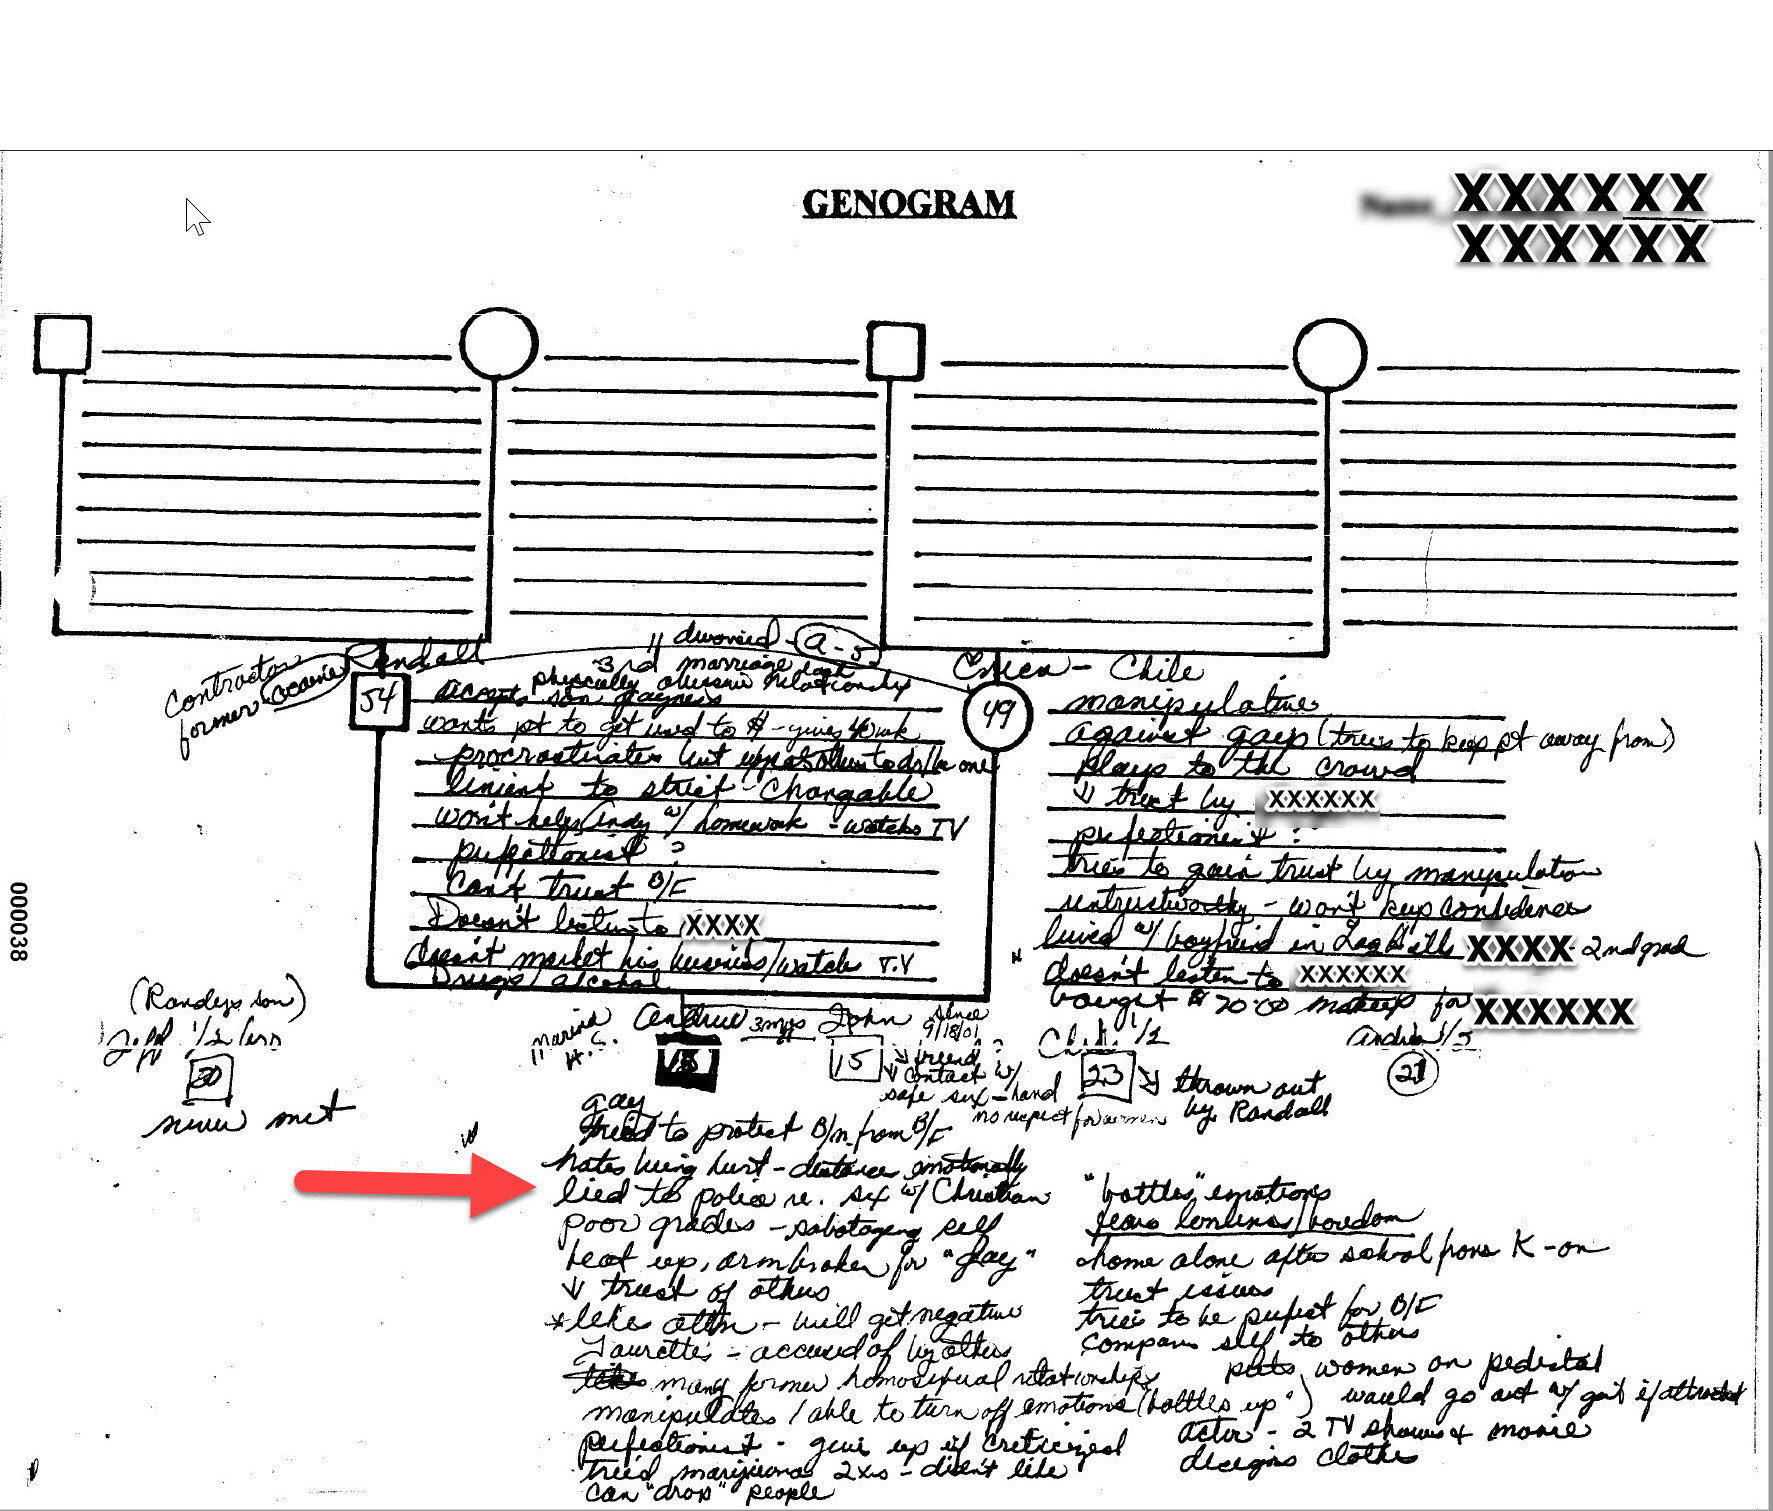 GENOGRAM
XXXXXX
XXXXXX
Contractor
former cocaine
Randall
divorced A-5
3rd marriage
physically abusive relationship
Erica - Chile
54
accepts son gayness
wants pt to get used to $ - gives wk
procrastinates but others to do
linient to strict - Changable
won't help Andy w/ homework - watches TV
perfectionist ?
Can't trust B/F
Doesn't listen to XXXX
doesn't market his business/watches T.V
Drugs/alcohol
49
manipulative
against gays (tries to keep pt away from)
plays to the crowd
↓ trust by XXXXXX
perfectionist ?
tries to gain trust by manipulation
untrustworthy - won't keep confidences
lived w/ boyfriend in XXXX - 2nd grad
doesn't listen to XXXXXX
bought $ makeup for XXXXXX
000038
(Randys son)
1/2
30
never met
Marina
H.S.
Andrew
3 mos
John
since
9/18/01
15
↓ friend ?
↓ contact w/
safe sex - hand
no respect for women
1/2
23
↓ thrown out
by Randall
Andrea
21
gay
tried to protect B/m from B/F
hates being hurt - distances emotionally
lied to police re. sex w/ Christian
poor grades - sabotaging self
beat up, arm broken for "gay"
↓ trust of others
* likes attn - will get negative
Taurettes - accused of by others
many former homosexual relationships
manipulates / able to turn off emotions ("bottles up")
perfectionist - give up if criticized
tried marijuana 2xs - didn't like
can "drop" people
"bottles" emotions
fears lonliness/boredom
home alone after school from K - on
trust issues
tries to be perfect for B/F
compares self to others
puts women on pedistal
would go out w/ girl if attracted
actor - 2 TV shows & movie
designs clothes